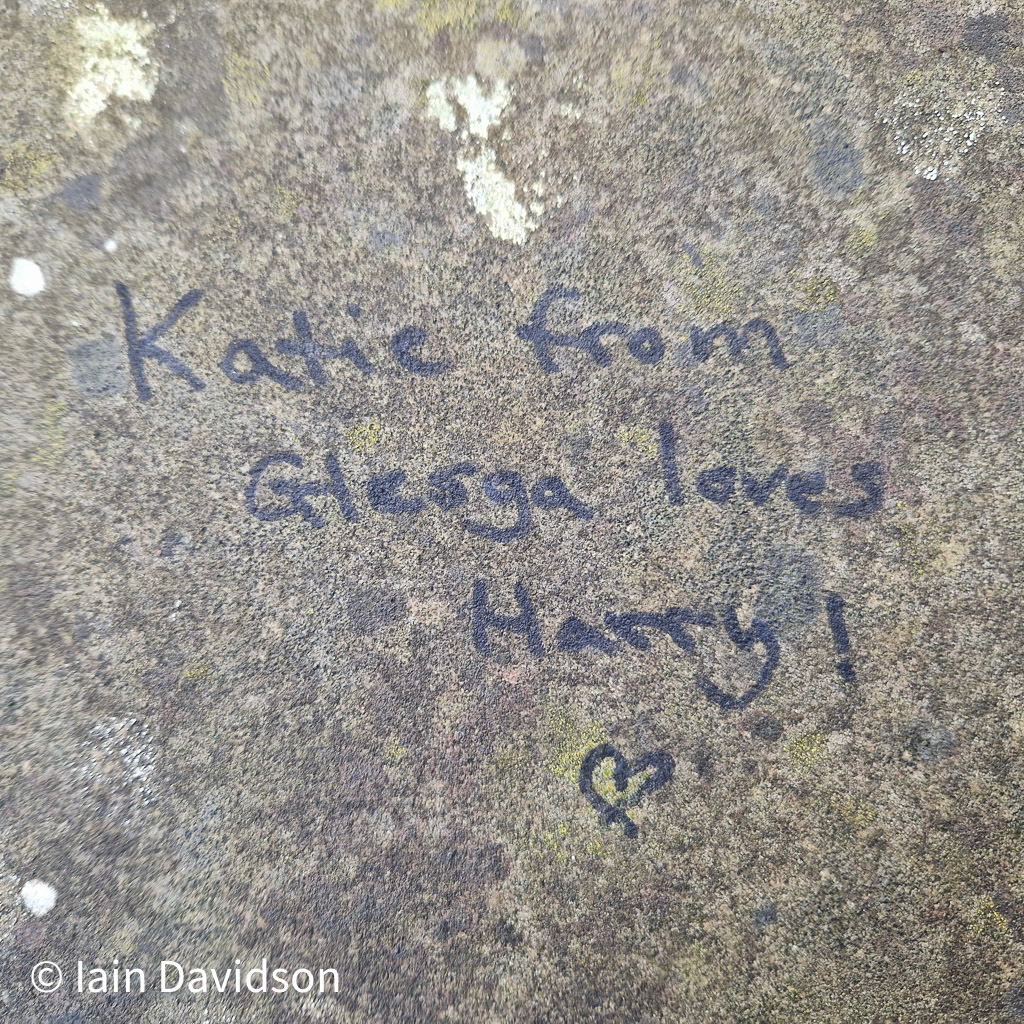 Katie from
Glesga loves
Harry!
© Iain Davidson